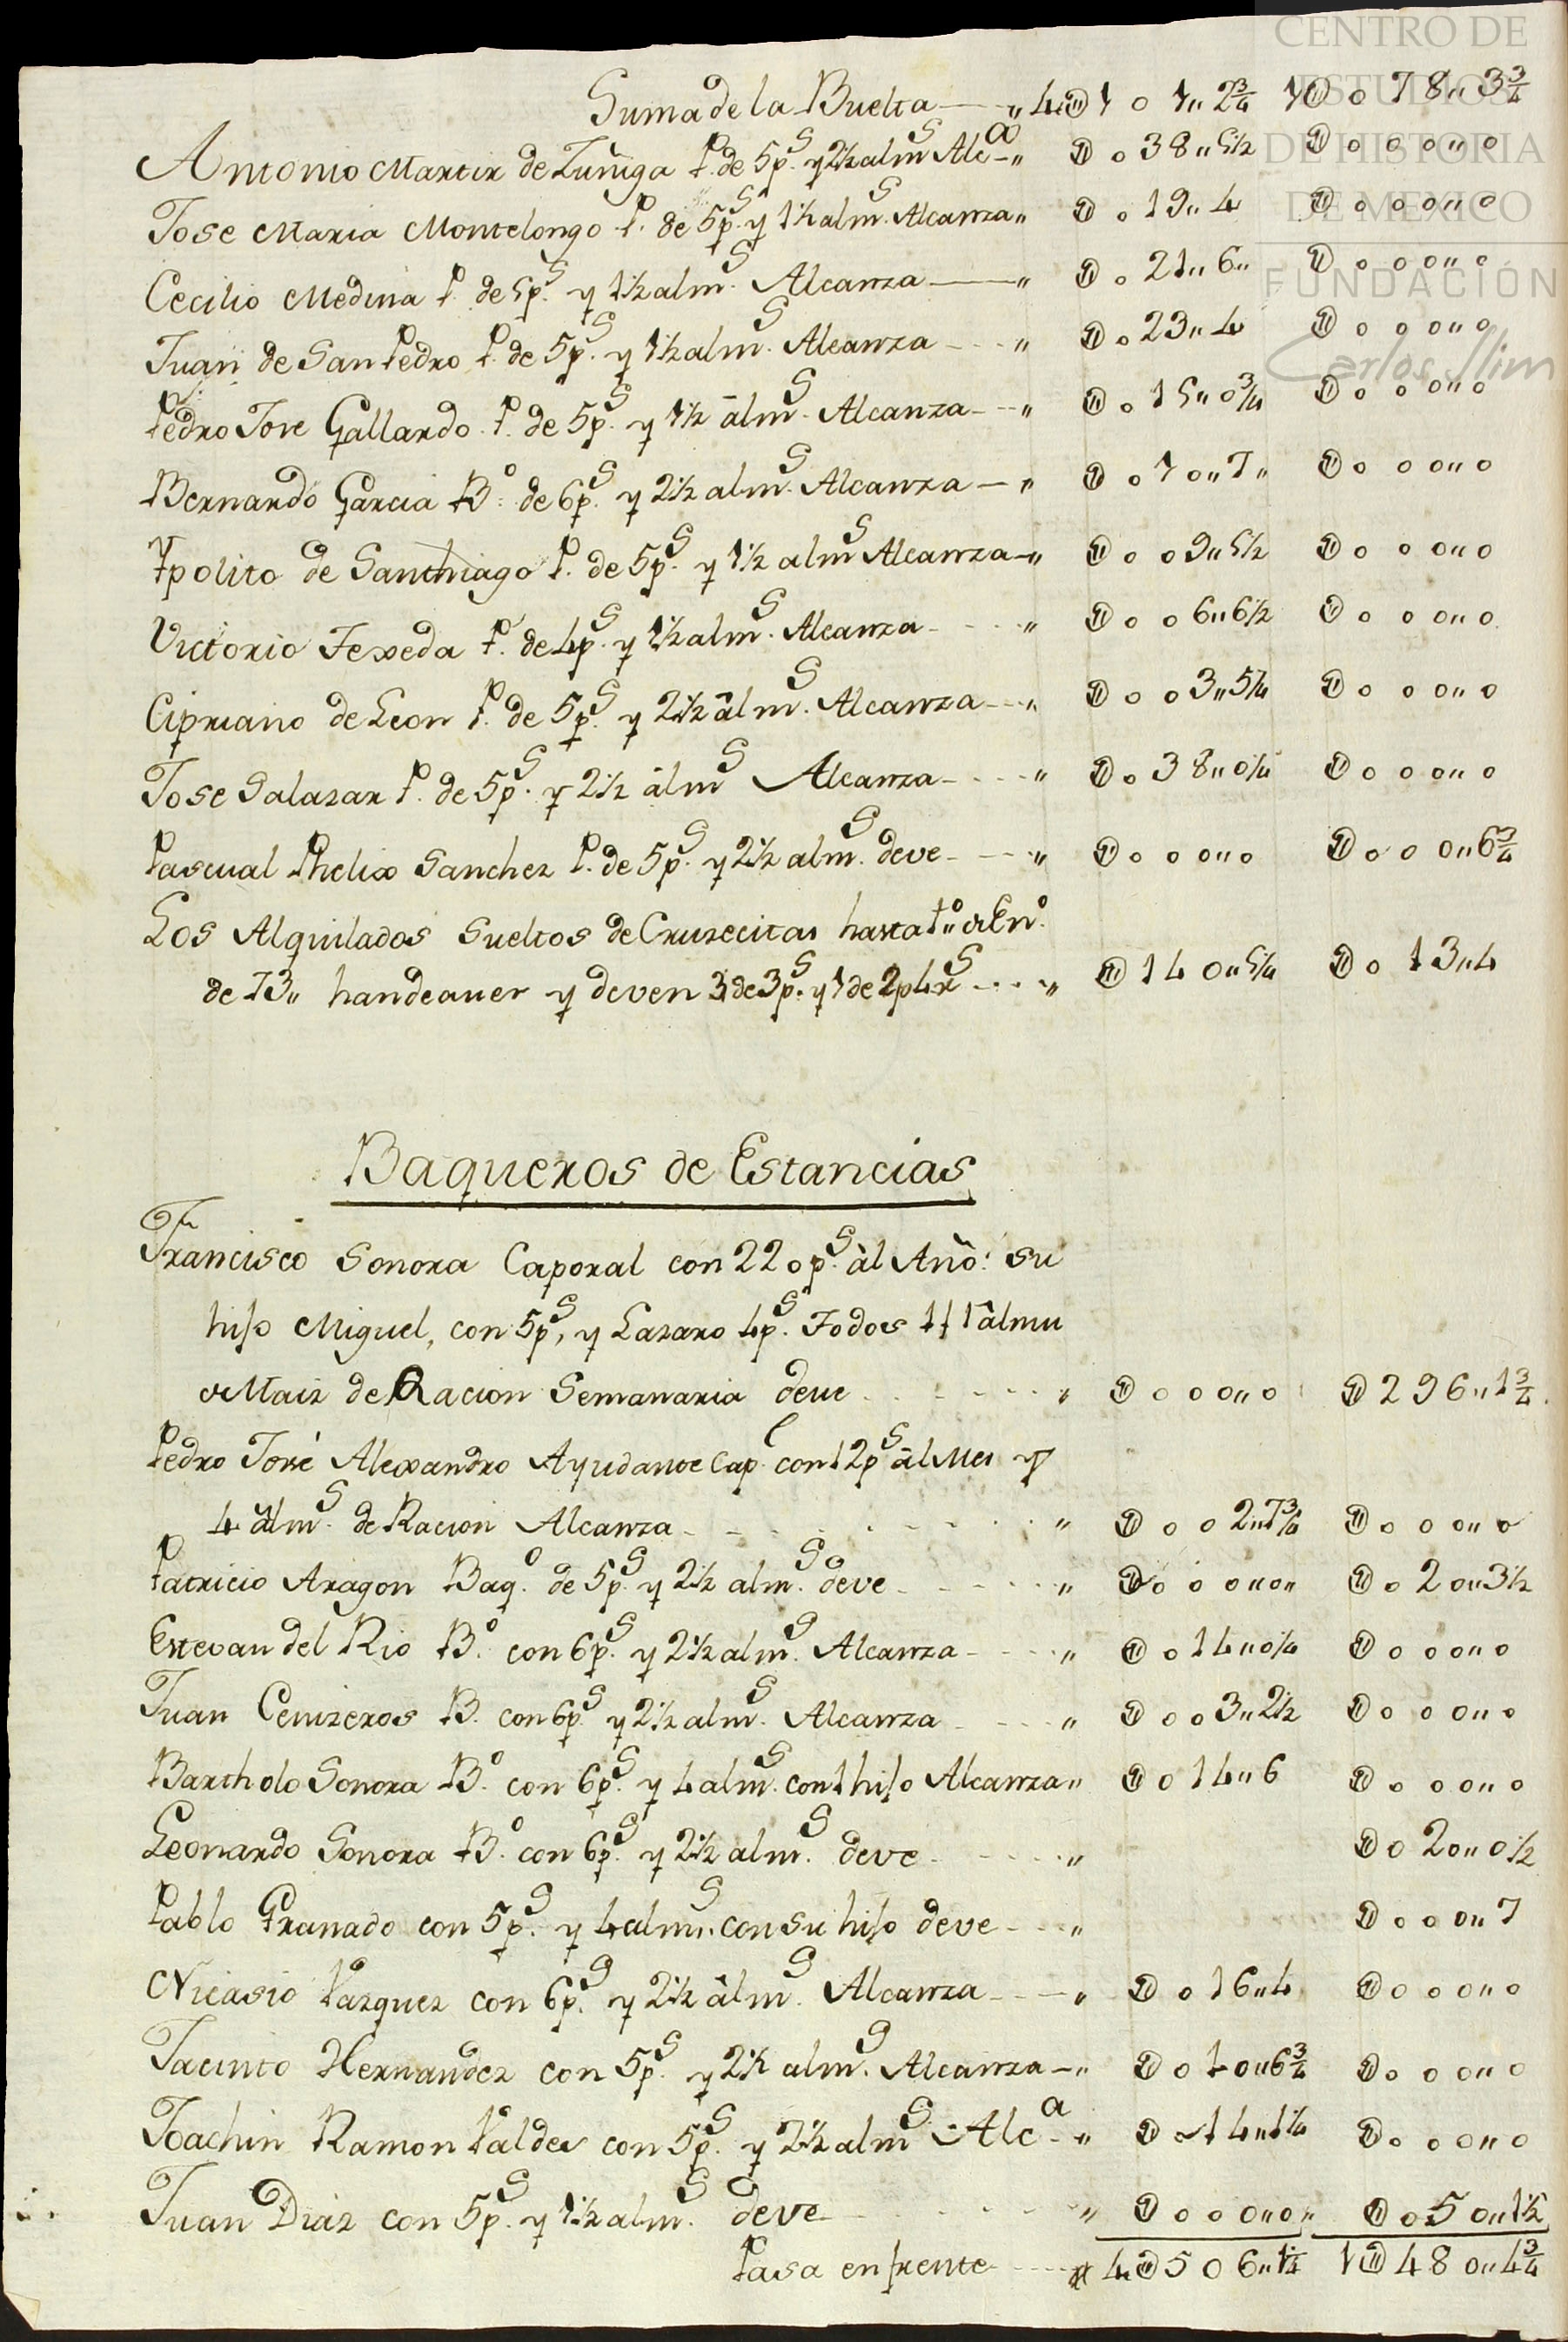 CENTRO DE
ESTUDIOS
DE HISTORIA
DE MEXICO
FUNDACIÓN
Carlos Slim
Suma de la Buelta — „ 4 U 1 0 1 „ 2¾ 1 U 0 7 8 „ 3¾
Antonio Martin de Zuñiga P. de 5 p.s y 2½ alms Alca — „ U 0 3 8 „ 5½ U 0 0 0 „ 0
Jose Maria Montelongo P. de 5 p.s y 1½ alm.s Alcanza „ U 0 1 9 „ 4 U 0 0 0 „ 0
Cecilio Medina P. de 5 p.s y 1½ alm.s Alcanza — „ U 0 2 1 „ 6 „ U 0 0 0 „ 0
Juan de San Pedro P. de 5 p.s y 1½ alm.s Alcanza - - - „ U 0 2 3 „ 4 U 0 0 0 „ 0
Pedro Jose Gallardo P. de 5 p.s y 1½ álm.s Alcanza - - „ U 0 1 5 „ 0¾ U 0 0 0 „ 0
Bernardo Garcia B.o de 6 p.s y 2½ alm.s Alcanza — „ U 0 1 0 „ 7 „ U 0 0 0 „ 0
Ypolito de Santhiago P. de 5 p.s y 1½ alms Alcanza - „ U 0 0 9 „ 5½ U 0 0 0 „ 0
Victorio Texeda P. de 4 p.s y 1½ alm.s Alcanza - - - „ U 0 0 6 „ 6½ U 0 0 0 „ 0
Cipriano de Leon P. de 5 p.s y 2½ âlm.s Alcanza - - - „ U 0 0 3 „ 5¼ U 0 0 0 „ 0
Jose Salazar P. de 5 p.s y 2½ álms Alcanza - - - „ U 0 3 8 „ 0¼ U 0 0 0 „ 0
Pascual Phelix Sanchez P. de 5 p.s y 2½ alm.s deve - - - „ U 0 0 0 „ 0 U 0 0 0 „ 6¾
Los Alquilados Sueltos de Cruzecitas hasta 1.o „ de En.o
de 73 „ han de aver y deven 3 de 3 p.s y 1 de 2 p 4 rs - - - „ U 1 4 0 „ 5¼ U 0 1 3 „ 4
Baqueros de Estancias
Francisco Sonora Caporal con 220 p.s âl Año: su
hijo Miguel, con 5 ps, y Lazaro 4 p.s Todos 11 ½ âlmu
de Maiz de Racion Semanaria deve - - - - „ U 0 0 0 „ 0 U 2 9 6 „ 1¾
Pedro José Alexandro Ayudante Cap.l con 12 ps âl Mes y
4 alm.s de Racion Alcanza - - - - - „ U 0 0 2 „ 7¾ U 0 0 0 „ 0
Patricio Aragon Baq.o de 5 p.s y 2½ alm.s deve - - - - „ U 0 0 0 „ 0 „ U 0 2 0 „ 3½
Estevan del Rio B.o con 6 p.s y 2½ alm.s Alcanza - - - „ U 0 1 4 „ 0¼ U 0 0 0 „ 0
Juan Cenizeros B. con 6 p.s y 2½ alm.s Alcanza - - - „ U 0 0 3 „ 2½ U 0 0 0 „ 0
Bartholo Sonora B.o con 6 p.s y 4 alm.s con 1 hijo Alcanza „ U 0 1 4 „ 6 U 0 0 0 „ 0
Leonardo Sonora B.o con 6 p.s y 2½ alm.s deve - - - „ U 0 2 0 „ 0½
Pablo Granado con 5 p.s y 4 alms. con su hijo deve - - - „ U 0 0 0 „ 7
Nicasio Vazquez con 6 p.s y 2½ âlm.s Alcanza - - - „ U 0 1 6 „ 4 U 0 0 0 „ 0
Jacinto Hernandez con 5 p.s y 2½ alm.s Alcanza - „ U 0 1 0 „ 6¾ U 0 0 0 „ 0
Joachin Ramon Valdes con 5 p.s y 2½ alms Alc.a - „ U 0 1 4 „ 1¼ U 0 0 0 „ 0
Juan Diaz con 5 p.s y 1½ alm.s deve - - - - „ U 0 0 0 „ 0 „ U 0 5 0 „ 1½
Pasa en frente - - - „ 4 U 5 0 6 „ 1¼ 1 U 4 8 0 „ 4¾